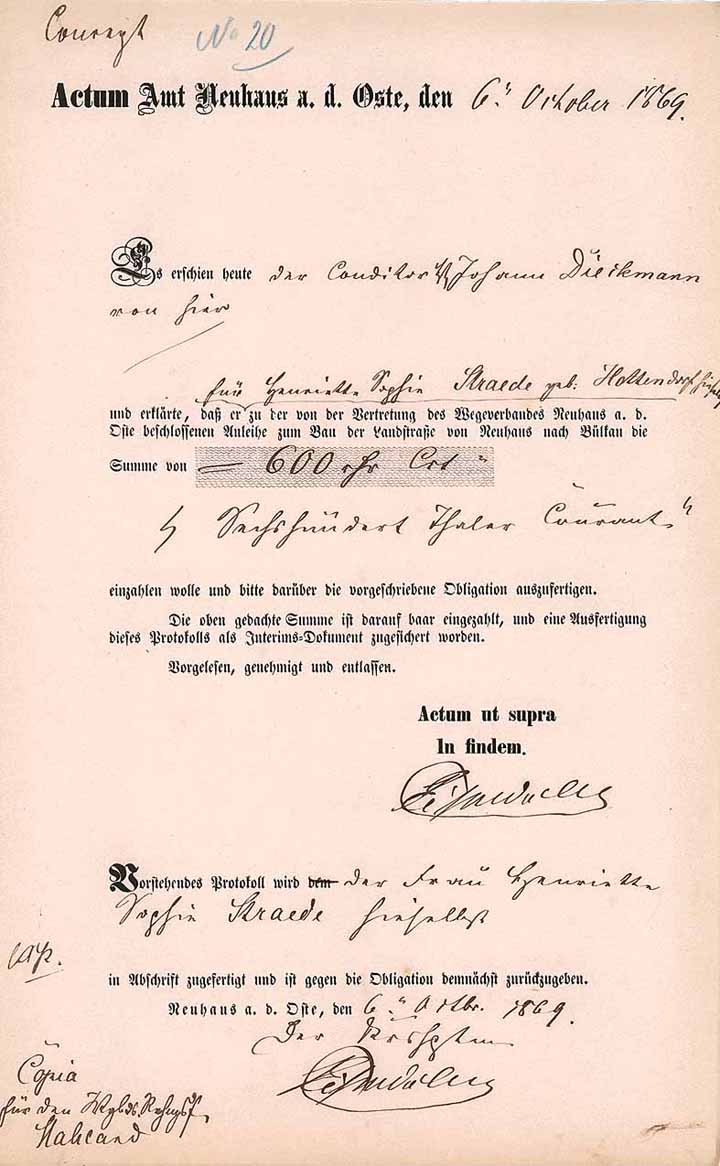 Concept
No 20
Actum Amt Neuhaus a. d. Oste, den 6n October 1869.
Es erschien heute der Conditor Johann Dieckmann
von hier
für Henriette Sophie Straede geb: Hottendorf hieselbst
und erklärte, daß er zu der von der Vertretung des Wegeverbandes Neuhaus a. d.
Oste beschlossenen Anleihe zum Bau der Landstraße von Neuhaus nach Bülkau die
Summe von = 600 rthr Crt "
Sechshundert Thaler Courant "
einzahlen wolle und bitte darüber die vorgeschriebene Obligation auszufertigen.
Die oben gedachte Summe ist darauf baar eingezahlt, und eine Ausfertigung
dieses Protokolls als Interims-Dokument zugesichert worden.
Vorgelesen, genehmigt und entlassen.
Actum ut supra
In findem.
Vorstehendes Protokoll wird dem der Frau Henriette
Sophie Straede hieselbst
in Abschrift zugefertigt und ist gegen die Obligation demnächst zurückzugeben.
Neuhaus a. d. Oste, den 6n Octbr. 1869.
Der
Copia
für den